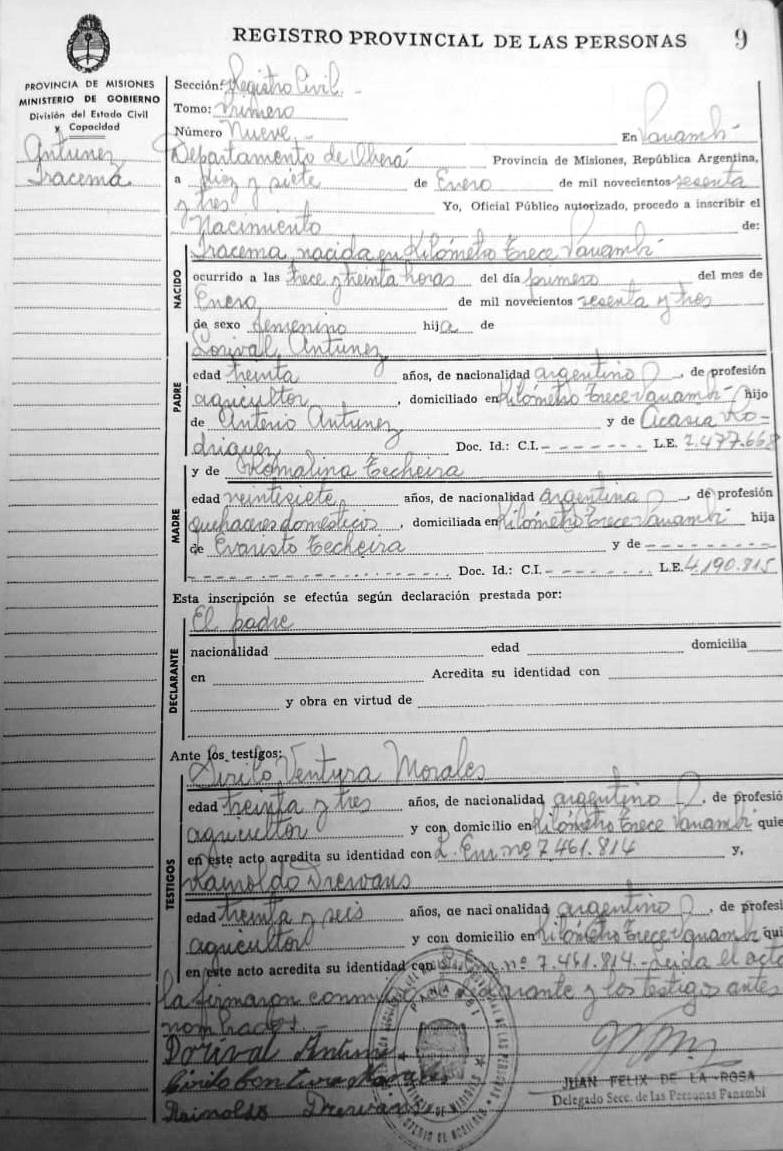 REGISTRO PROVINCIAL DE LAS PERSONAS 9
PROVINCIA DE MISIONES
MINISTERIO DE GOBIERNO
División del Estado Civil
y Capacidad
Antunez
Iracema
Sección: Registro Civil.-
Tomo: Primero
Número Nueve.- En Panambí
Departamento de Oberá Provincia de Misiones, República Argentina,
a diez y siete de Enero de mil novecientos sesenta
y tres Yo, Oficial Público autorizado, procedo a inscribir el
Nacimiento de:
NACIDO
Iracema, nacida en Kilómetro Trece Panambí
ocurrido a las trece y treinta horas del día primero del mes de
Enero de mil novecientos sesenta y tres
de sexo femenino hija de
PADRE
Dorival Antunez
edad treinta años, de nacionalidad argentino, de profesión
agricultor, domiciliado en Kilómetro Trece Panambí hijo
de Antonio Antunez y de Acasia Ro-
driguez Doc. Id.: C.I. - - - - - - L.E. 2.477.668
MADRE
y de Romalina Techeira
edad veintisiete años, de nacionalidad Argentina, de profesión
quehaceres domésticos, domiciliada en Kilómetro Trece Panambí hija
de Evaristo Techeira y de - - - - - - - -
- - - - - - - - Doc. Id.: C.I. - - - - - - L.E. 4.190.815
Esta inscripción se efectúa según declaración prestada por:
DECLARANTE
El padre
nacionalidad edad domicilia
en Acredita su identidad con
y obra en virtud de
Ante los testigos:
TESTIGOS
Sirilo Ventura Morales
edad treinta y tres años, de nacionalidad argentino, de profesió
agricultor y con domicilio en Kilómetro Trece Panambí quie
en este acto acredita su identidad con L. Enr. nº 7.461.814 y,
Rainoldo Drewans
edad treinta y seis años, de nacionalidad argentino, de profesi
agricultor y con domicilio en Kilómetro Trece Panambí qui
en este acto acredita su identidad con L. Enr. nº 7.461.814.- Leida el acta
la firmaron conmigo el declarante y los testigos antes
nombrados.-
Dorival Antune
Cirilo Bentura Morales
Reinoldo Drewans
JUAN FELIX DE LA ROSA
Delegado Secc. de las Personas Panambí